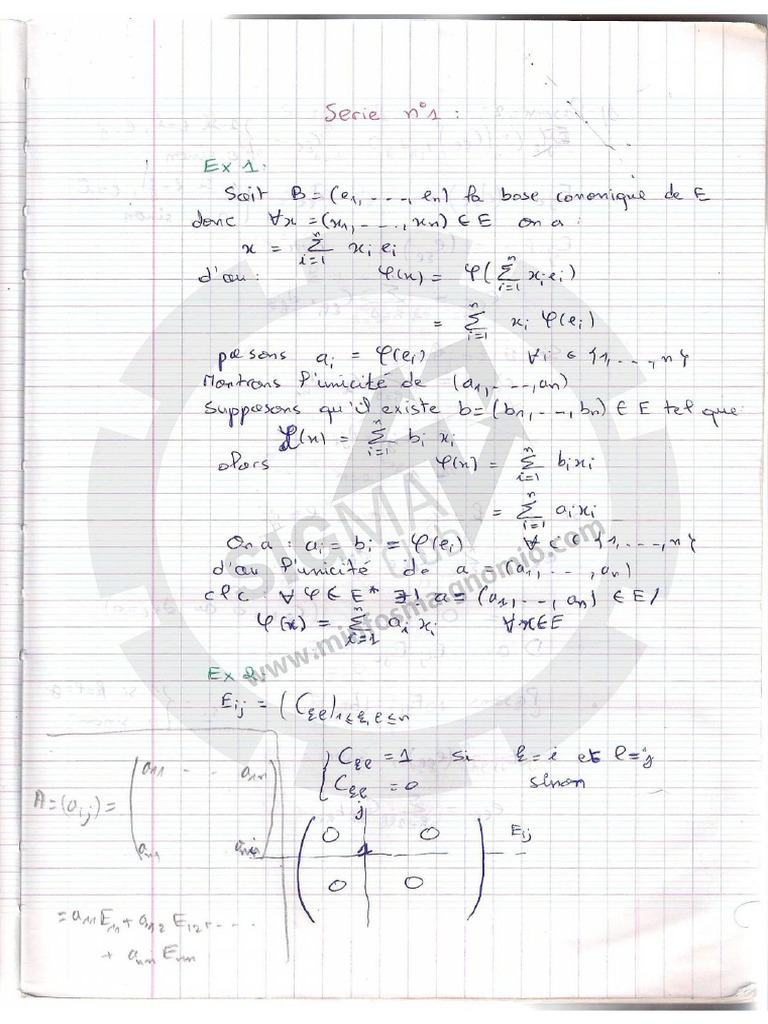 Serie n°1 :
Ex 1 :
Soit B = (e₁, - - -, eₙ) la base canonique de E
donc ∀x = (x₁, - - ., xₙ) ∈ E on a :
x = ∑ᵢ₌₁ⁿ xᵢ eᵢ
d'où : φ(x) = φ(∑ᵢ₌₁ⁿ xᵢeᵢ)
= ∑ᵢ₌₁ⁿ xᵢ φ(eᵢ)
posons aᵢ = φ(eᵢ) ∀i ∈ {1, - - -, n}
Montrons l'unicité de (a₁, - - -, aₙ)
Supposons qu'il existe b = (b₁, - -, bₙ) ∈ E tel que:
φ(x) = ∑ᵢ₌₁ⁿ bᵢ xᵢ
alors φ(x) = ∑ᵢ₌₁ⁿ bᵢxᵢ
= ∑ᵢ₌₁ⁿ aᵢxᵢ
On a : aᵢ = bᵢ = φ(eᵢ) ∀ i ∈ {1, - - -, n}
d'où l'unicité de a = (a₁, - - , aₙ)
clc ∀ φ ∈ E* ∃! a = (a₁, - -, aₙ) ∈ E /
φ(x) = ∑ᵢ₌₁ⁿ aᵢ xᵢ ∀x∈E
SIGMA
www.minfosmaignomio.com
Ex 2
Eᵢⱼ = (Cₖₗ)₁≤ₖ,ₗ≤ₙ
{ Cₖₗ = 1 si k = i et l = j
Cₖₗ = 0 sinon
A = (aᵢⱼ) = ( a₁₁ - - a₁ₙ
aₙ₁ aₙₙ )
j
( 0 0 ) Eᵢⱼ
1
0 0
= a₁₁E₁₁ + a₁₂ E₁₂ + - - - -
+ aₙₙ Eₙₙ